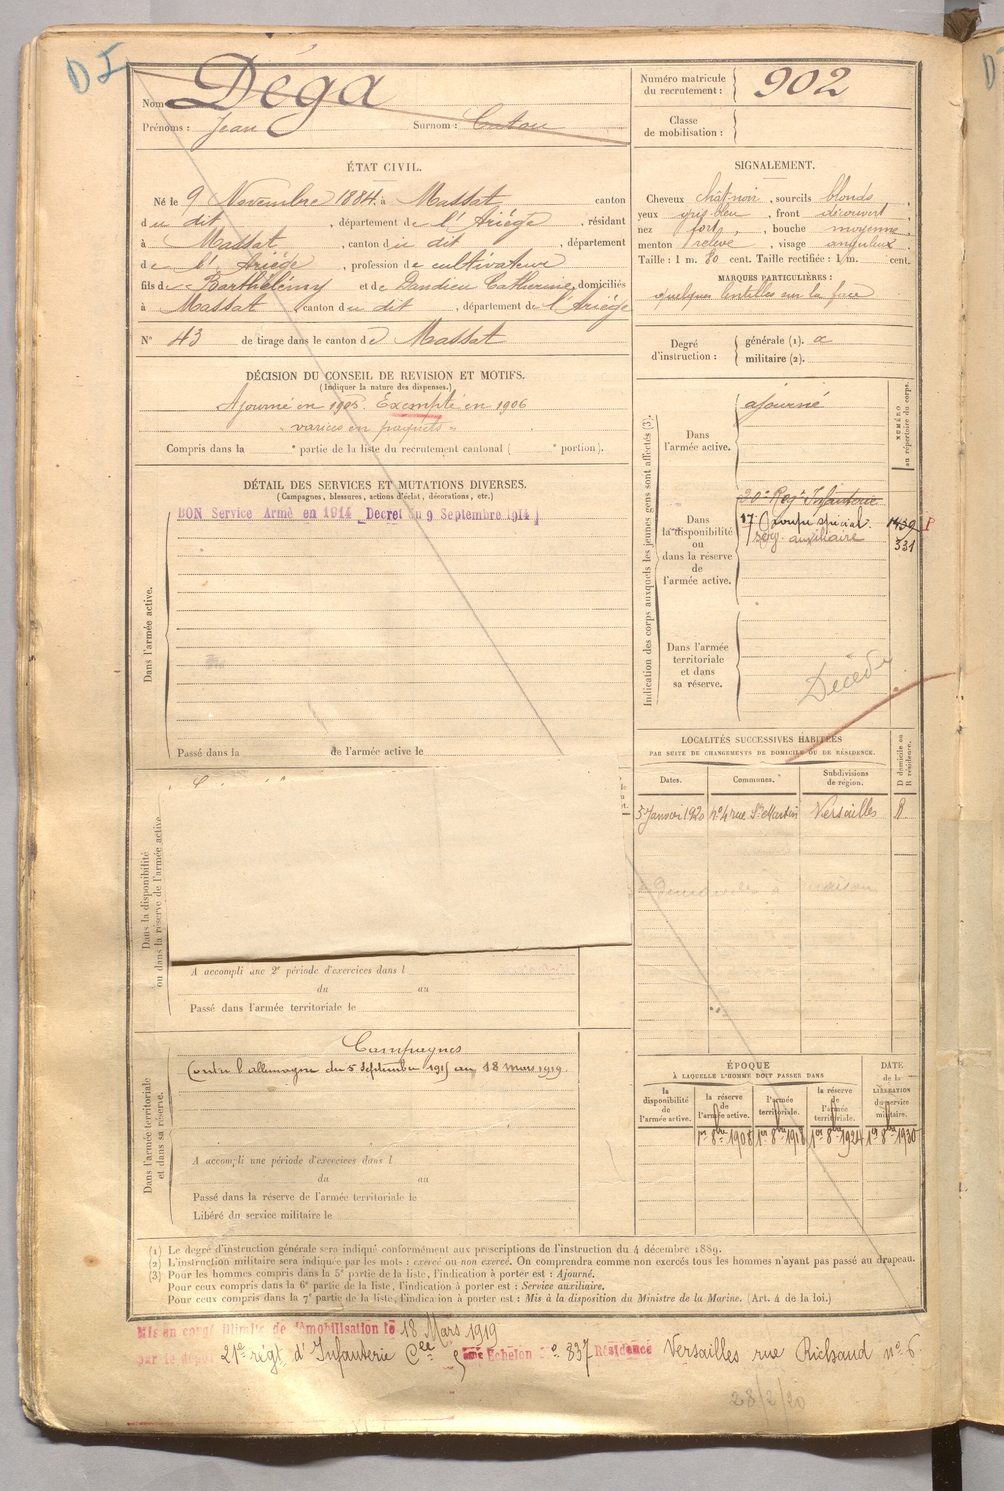 DI
Nom Déga
Prénoms : Jean Surnom : Caton
ÉTAT CIVIL.
Né le 9 Novembre 1884 à Massat canton
du dit, département de l'Ariège, résidant
à Massat, canton du dit, département
de l'Ariège, profession de cultivateur
fils de Barthélémy et de Dandieu Catherine, domiciliés
à Massat canton du dit, département de l'Ariège
N° 43 de tirage dans le canton de Massat
DÉCISION DU CONSEIL DE REVISION ET MOTIFS.
(Indiquer la nature des dispenses.)
Ajourné en 1905. Exempté en 1906
"varices en paquets"
Compris dans la e partie de la liste du recrutement cantonal ( e portion).
DÉTAIL DES SERVICES ET MUTATIONS DIVERSES.
(Campagnes, blessures, actions d'éclat, décorations, etc.)
BON Service Armé en 1914 (Décret du 9 Septembre 1914)
Dans l'armée active.
Passé dans la de l'armée active le
Dans la disponibilité
ou dans la réserve de l'armée active.
A accompli une 2e période d'exercices dans l
du au
Passé dans l'armée territoriale le
Dans l'armée territoriale
et dans sa réserve.
Campagnes
Contre l'allemagne du 5 septembre 1915 au 18 mars 1919.
A accompli une période d'exercices dans l
du au
Passé dans la réserve de l'armée territoriale le
Libéré du service militaire le
Numéro matricule
du recrutement : 902
Classe
de mobilisation :
SIGNALEMENT.
Cheveux chât-noir, sourcils blonds,
yeux gris-bleu, front découvert,
nez fort, bouche moyenne,
menton relevé, visage anguleux.
Taille : 1 m. 80 cent. Taille rectifiée : 1 m. cent.
MARQUES PARTICULIÈRES :
quelques lentilles sur la face
Degré
d'instruction :
générale (1).
militaire (2).
Indication des corps auxquels les jeunes gens sont affectés (3).
NUMÉRO
au répertoire du corps.
Dans
l'armée active.
ajourné
Dans
la disponibilité
ou
dans la réserve
de
l'armée active.
20e Regt Infanterie
17 Groupe spécial. 1439 P
serv. auxiliaire 331
Dans l'armée
territoriale
et dans
sa réserve.
Décédé
LOCALITÉS SUCCESSIVES HABITÉES
PAR SUITE DE CHANGEMENTS DE DOMICILE OU DE RÉSIDENCE.
D domicile ou
R résidence.
Dates. Communes. Subdivisions
de région.
5 Janvier 1920 n° 4 rue St Martin Versailles R.
ÉPOQUE
À LAQUELLE L'HOMME DOIT PASSER DANS
DATE
de la
LIBÉRATION
du service
militaire.
la
disponibilité
de
l'armée active.
la réserve
de
l'armée active.
l'armée
territoriale.
la réserve
de
l'armée
territoriale.
1er 8bre 1908 1er 8bre 1918 1er 8bre 1924 1er 8bre 1930
(1) Le degré d'instruction générale sera indiqué conformément aux prescriptions de l'instruction du 4 décembre 1889.
(2) L'instruction militaire sera indiquée par les mots : exercé ou non exercé. On comprendra comme non exercés tous les hommes n'ayant pas passé au drapeau.
(3) Pour les hommes compris dans la 5e partie de la liste, l'indication à porter est : Ajourné.
Pour ceux compris dans la 6e partie de la liste, l'indication à porter est : Service auxiliaire.
Pour ceux compris dans la 7e partie de la liste, l'indication à porter est : Mis à la disposition du Ministre de la Marine. (Art. 4 de la loi.)
Mis en congé illimité de démobilisation le 18 Mars 1919
par le dépôt 21e régt d'Infanterie Échelon n° 837 Résidence Versailles rue Richaud n° 6
28/2/20